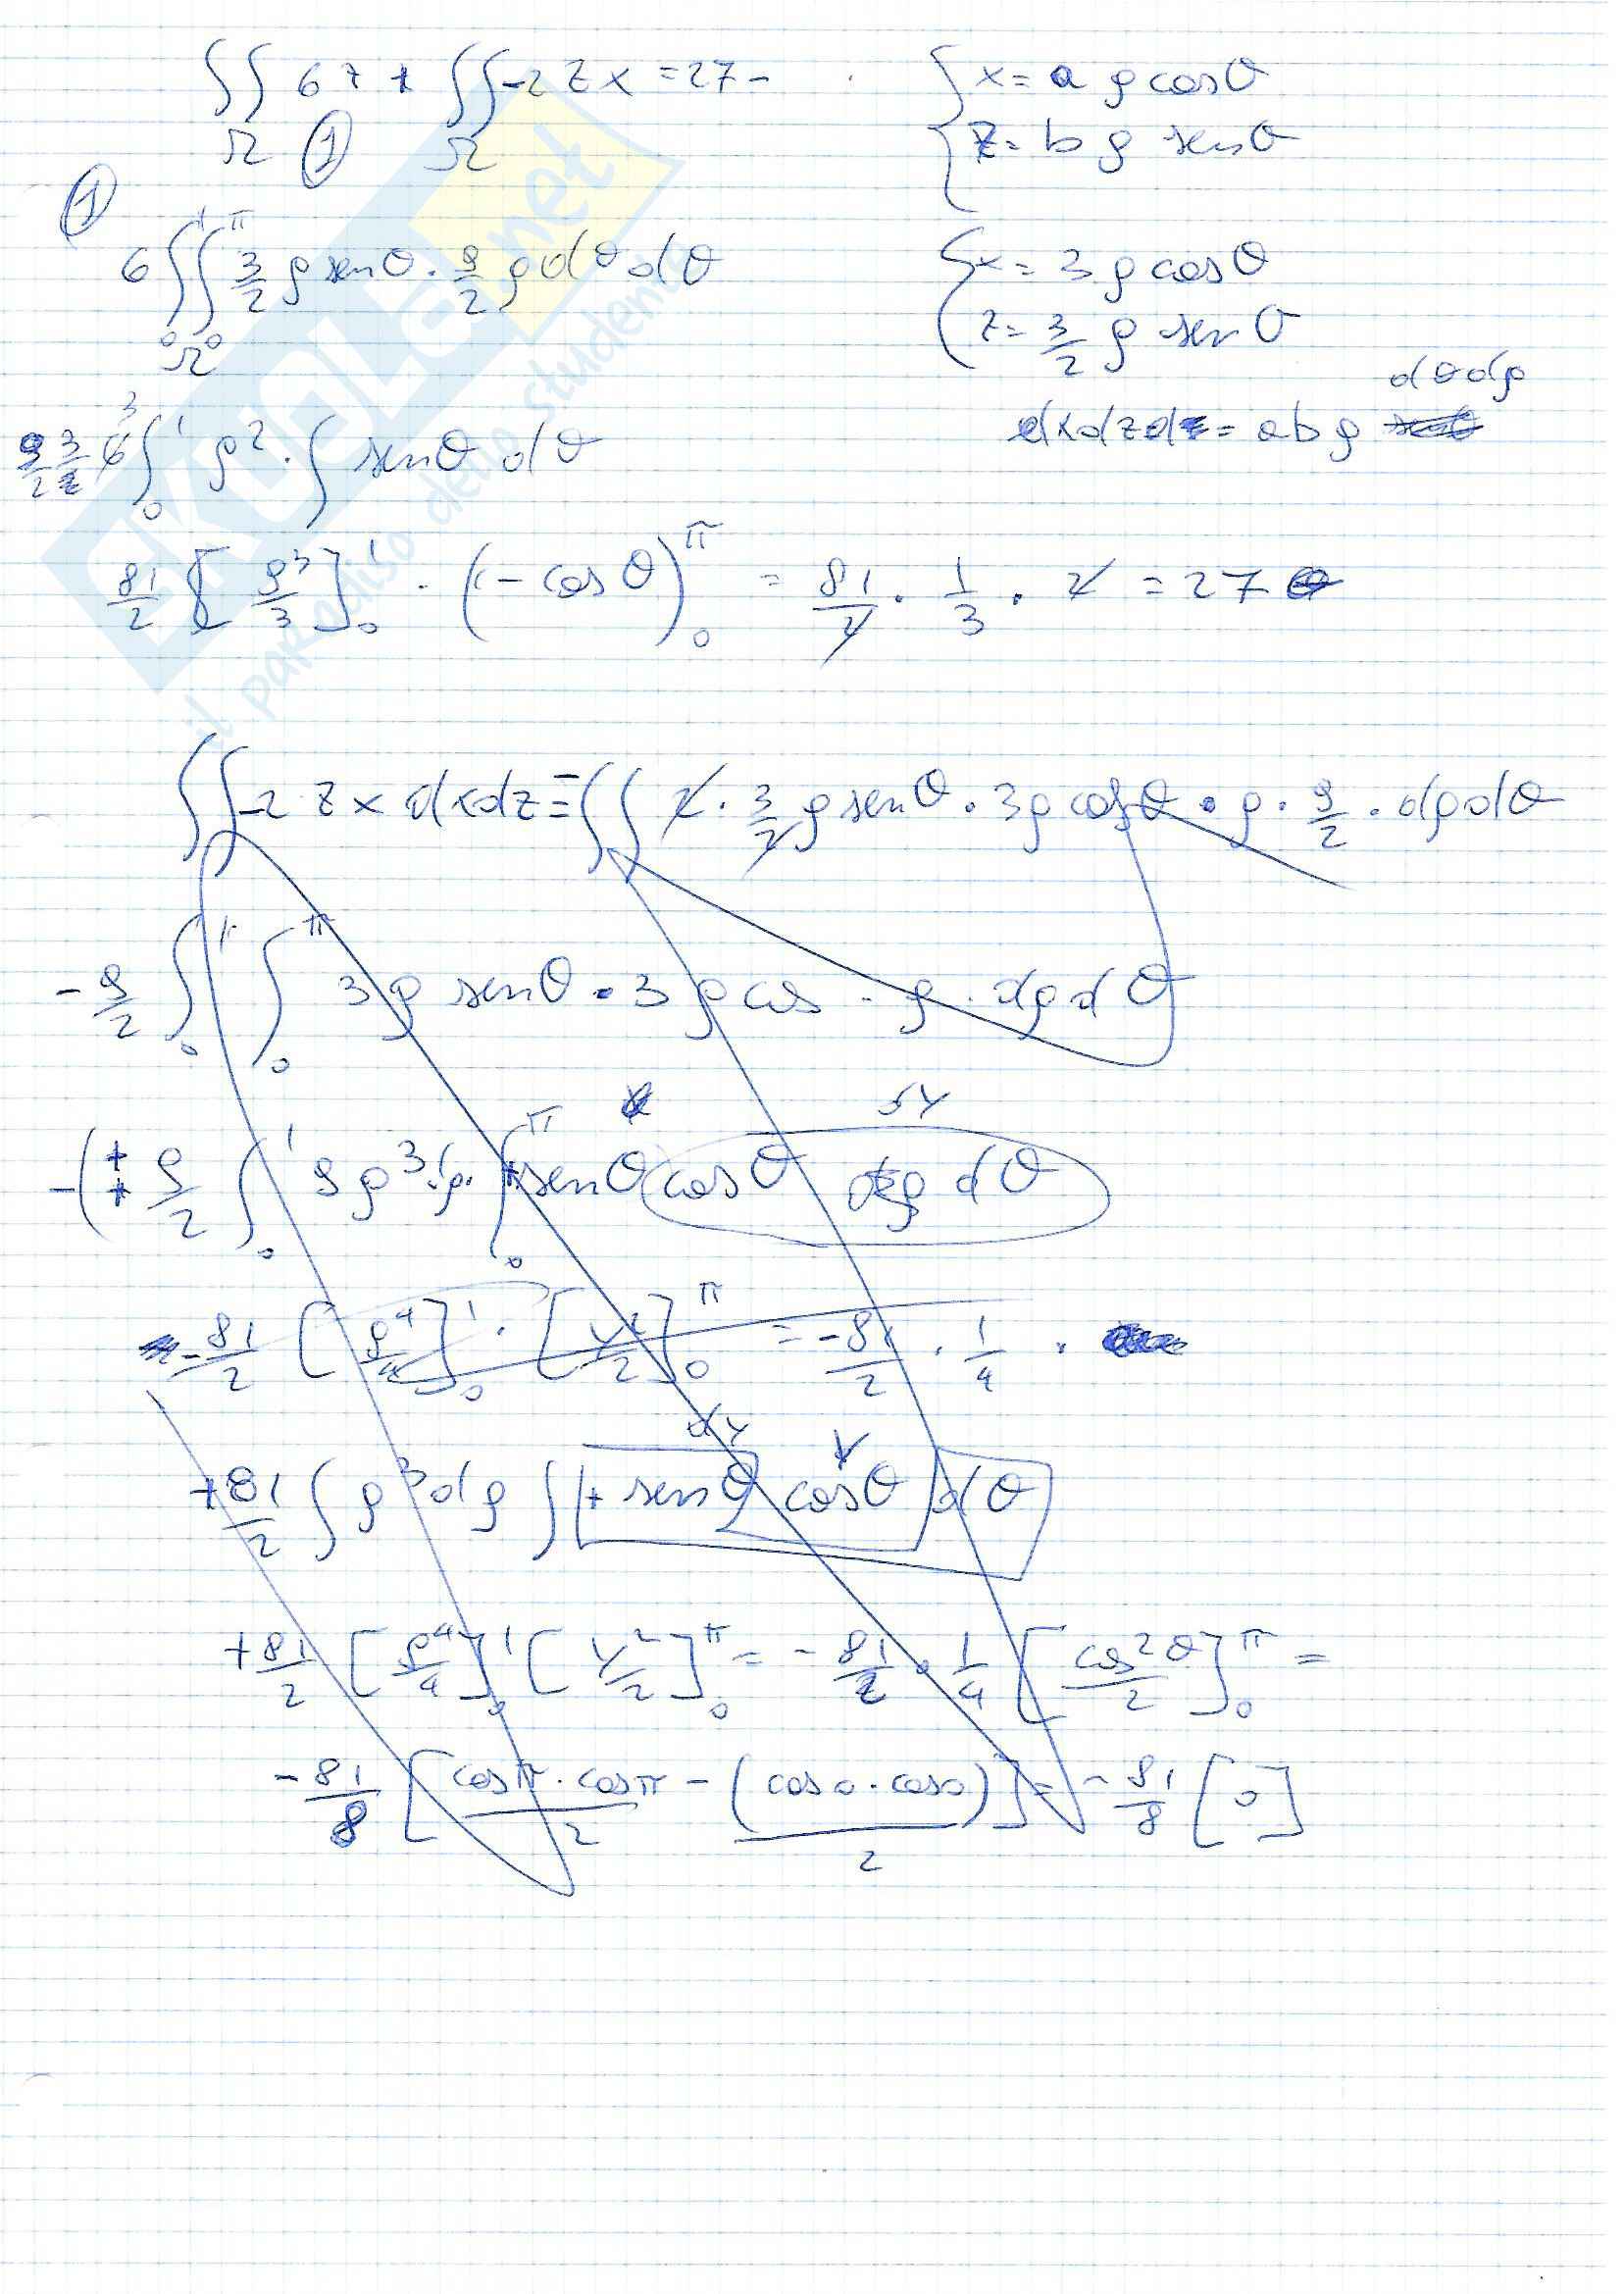 ∫∫_Ω 6z + ∫∫_Ω -2zx = 27 -
{ x = a ρ cosθ
z = b ρ senθ
①
①
6 ∫₀¹∫₀^π_Ω 3/2 ρ senθ · 9/2 ρ dθ dθ
{ x = 3 ρ cosθ
z = 3/2 ρ sen θ
dθdρ
dxdzdz = abρ
9/2 3/2 6 3 ∫₀¹ ρ² · ∫ senθ dθ
81/2 [ρ³/3]₀¹ · (-cosθ)₀^π = 81/2 · 1/3 · 2 = 27
∫∫ -2 z x dxdz = -∫∫ 2 · 3/2 ρ senθ · 3ρ cosθ · ρ · 9/2 · dρdθ
-9/2 ∫₀¹ ∫₀^π 3ρ senθ · 3ρ cos · ρ · dρdθ
dy
-(+ 9/2 ∫₀¹ 9ρ³ · ∫₀^π senθ cosθ dθ
-81/2 [ρ⁴/4]₀¹ · [y²/2]₀^π = -81/2 · 1/4 ·
dy y
+81/2 ∫ρ³dρ ∫ + senθ cosθ dθ
+81/2 [ρ⁴/4]₀¹ [y²/2]₀^π = -81/2 · 1/4 [cos²θ/2]₀^π =
-81/8 [cosπ · cosπ/2 - (cos0 · cos0)/2] = -81/8 [0]
SKUOLA.net
il paradiso dello studente